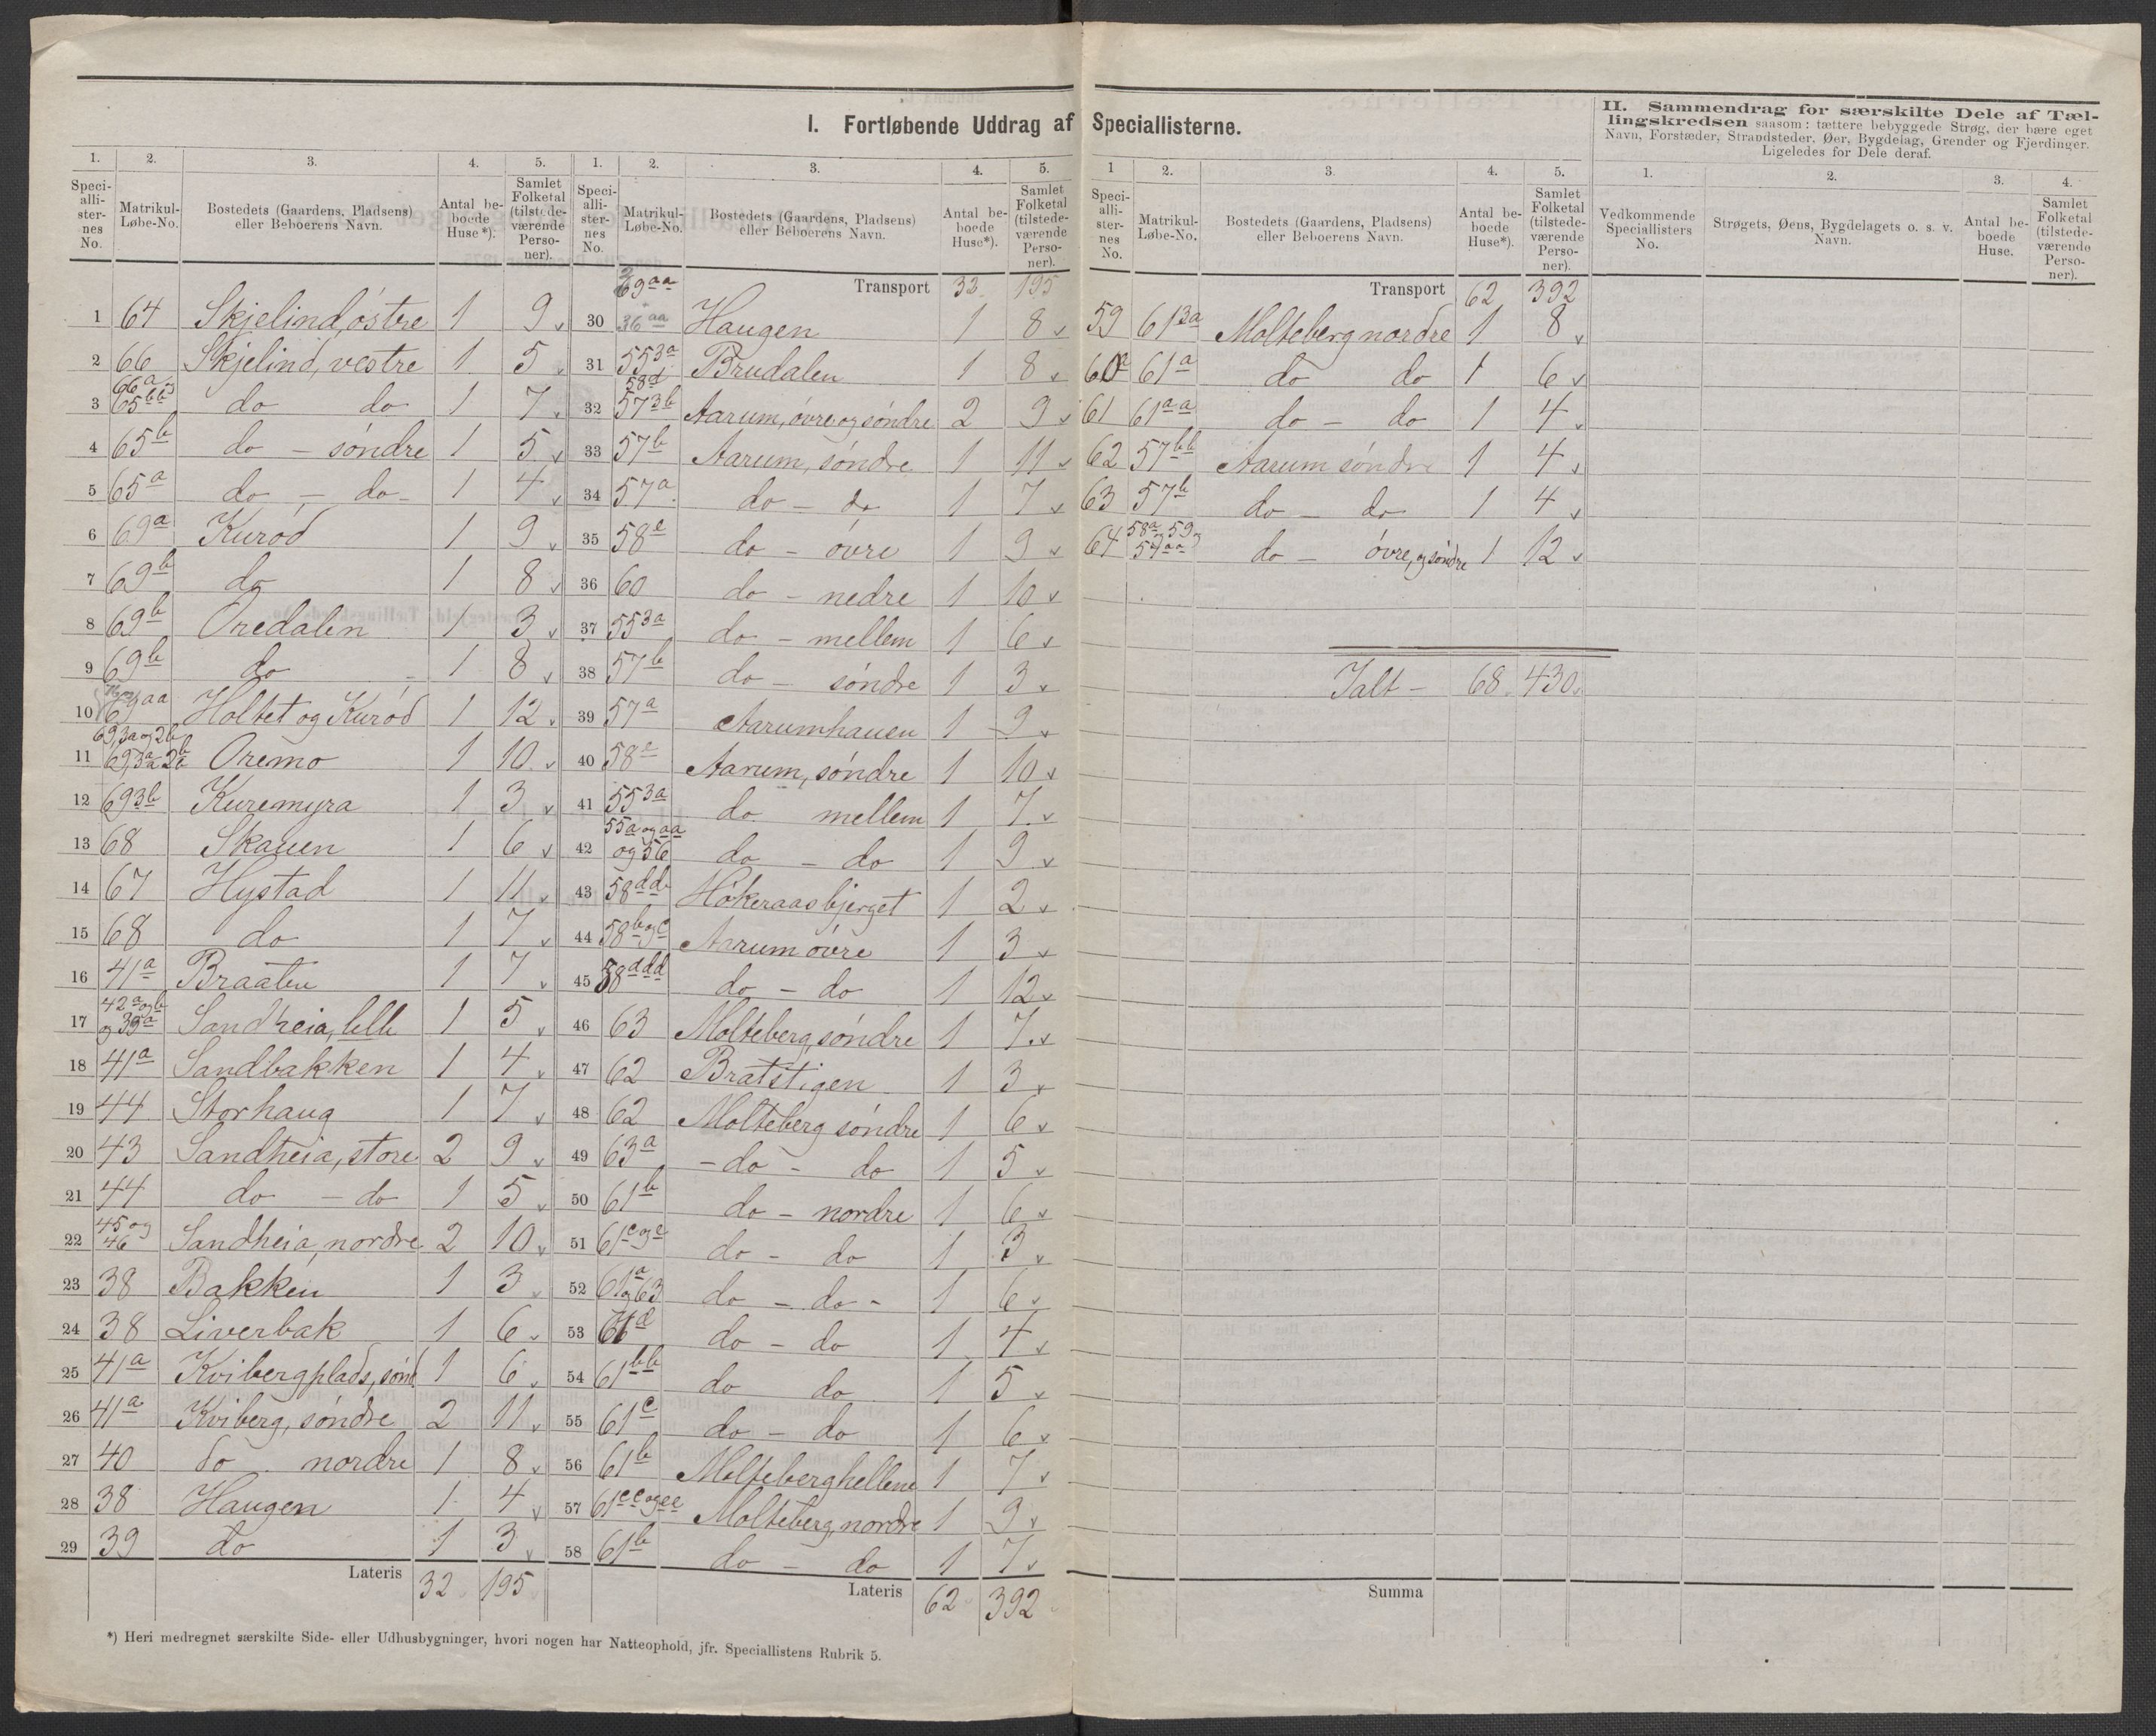 I. Fortløbende Uddrag af Speciallisterne.
II. Sammendrag for særskilte Dele af Tæl-
lingskredsen saasom: tættere bebyggede Strøg, der bære eget
Navn, Forstæder, Strandsteder, Øer, Bygdelag, Grender og Fjerdinger.
Ligeledes for Dele deraf.
1. 2. 3. 4. 5.
Speci-alli-ster-nes No. Matrikul-Løbe-No. Bostedets (Gaardens, Pladsens) eller Beboerens Navn. Antal be-boede Huse*). Samlet Folketal (tilstede-værende Perso-ner).
1 64 Skjelind, østre 1 9
2 66 Skjelind, vestre 1 5
3 66a 65bb do do 1 7
4 65b do - søndre 1 5
5 65a do - do 1 4
6 69a Kurød 1 9
7 69b do 1 8
8 69b Oredalen 1 3
9 69b do 1 8
10 69aa Holtet og Kurød 1 12
11 69,3a og 2b Oremo 1 10
12 693b Kuremyra 1 3
13 68 Skauen 1 6
14 67 Hystad 1 11
15 68 do 1 7
16 41a Braaten 1 7
17 42a og b og 39a Sandheia, lille 1 5
18 41a Sandbakken 1 4
19 44 Storhaug 1 7
20 43 Sandheia, store 2 9
21 44 do - do 1 5
22 45 og 46 Sandheia, nordre 2 10
23 38 Bakken 1 3
24 38 Liverbak 1 6
25 41a Kvibergplads, sønd 1 6
26 41a Kviberg, søndre 2 11
27 40 do nordre 1 8
28 38 Haugen 1 4
29 39 do 1 3
Lateris 32 195
1. 2. 3. 4. 5.
Speci-alli-ster-nes No. Matrikul-Løbe-No. Bostedets (Gaardens, Pladsens) eller Beboerens Navn. Antal be-boede Huse*). Samlet Folketal (tilstede-værende Perso-ner).
Transport 32 195
30 69aa 36aa Haugen 1 8
31 553a Brudalen 1 8
32 58d 573b Aarum, øvre og søndre 2 9
33 57b Aarum, søndre 1 11
34 57a do - do 1 7
35 58e do - øvre 1 9
36 60 do - nedre 1 10
37 553a do - mellem 1 6
38 57b do - søndre 1 3
39 57a Aarumhauen 1 9
40 58e Aarum, søndre 1 10
41 553a do mellem 1 7
42 55a og aa og 56 do - do 1 9
43 58dd Høkeraasbjerget 1 2
44 58b og c Aarum øvre 1 3
45 58ddd do - do 1 12
46 63 Molteberg, søndre 1 7
47 62 Bratstigen 1 3
48 62 Molteberg søndre 1 6
49 63a - do - do 1 5
50 61b do - nordre 1 6
51 61c og e do - do 1 3
52 61a og 63 do - do - 1 6
53 61d do - do 1 4
54 61bb do do 1 5
55 61c do - do 1 6
56 61b Molteberghellene 1 7
57 61cc og ee Molteberg, nordre 1 9
58 61b do - do 1 7
Lateris 62 392
1 2. 3. 4. 5.
Speci-alli-ster-nes No. Matrikul-Løbe-No. Bostedets (Gaardens, Pladsens) eller Beboerens Navn. Antal be-boede Huse*). Samlet Folketal (tilstede-værende Perso-ner).
Transport 62 392
59 613a Molteberg nordre 1 8
60 61a do do 1 6
61 61aa do - do 1 4
62 57bb Aarum søndre 1 4
63 57b do - do 1 4
64 58a, 59 og 57aa do - øvre, og søndre 1 12
Ialt - 68 430
Summa
1. 2. 3. 4.
Vedkommende Speciallisters No. Strøgets, Øens, Bygdelagets o. s. v. Navn. Antal be-boede Huse. Samlet Folketal (tilstede-værende Perso-ner).
*) Heri medregnet særskilte Side- eller Udhusbygninger, hvori nogen har Natteophold, jfr. Speciallistens Rubrik 5.